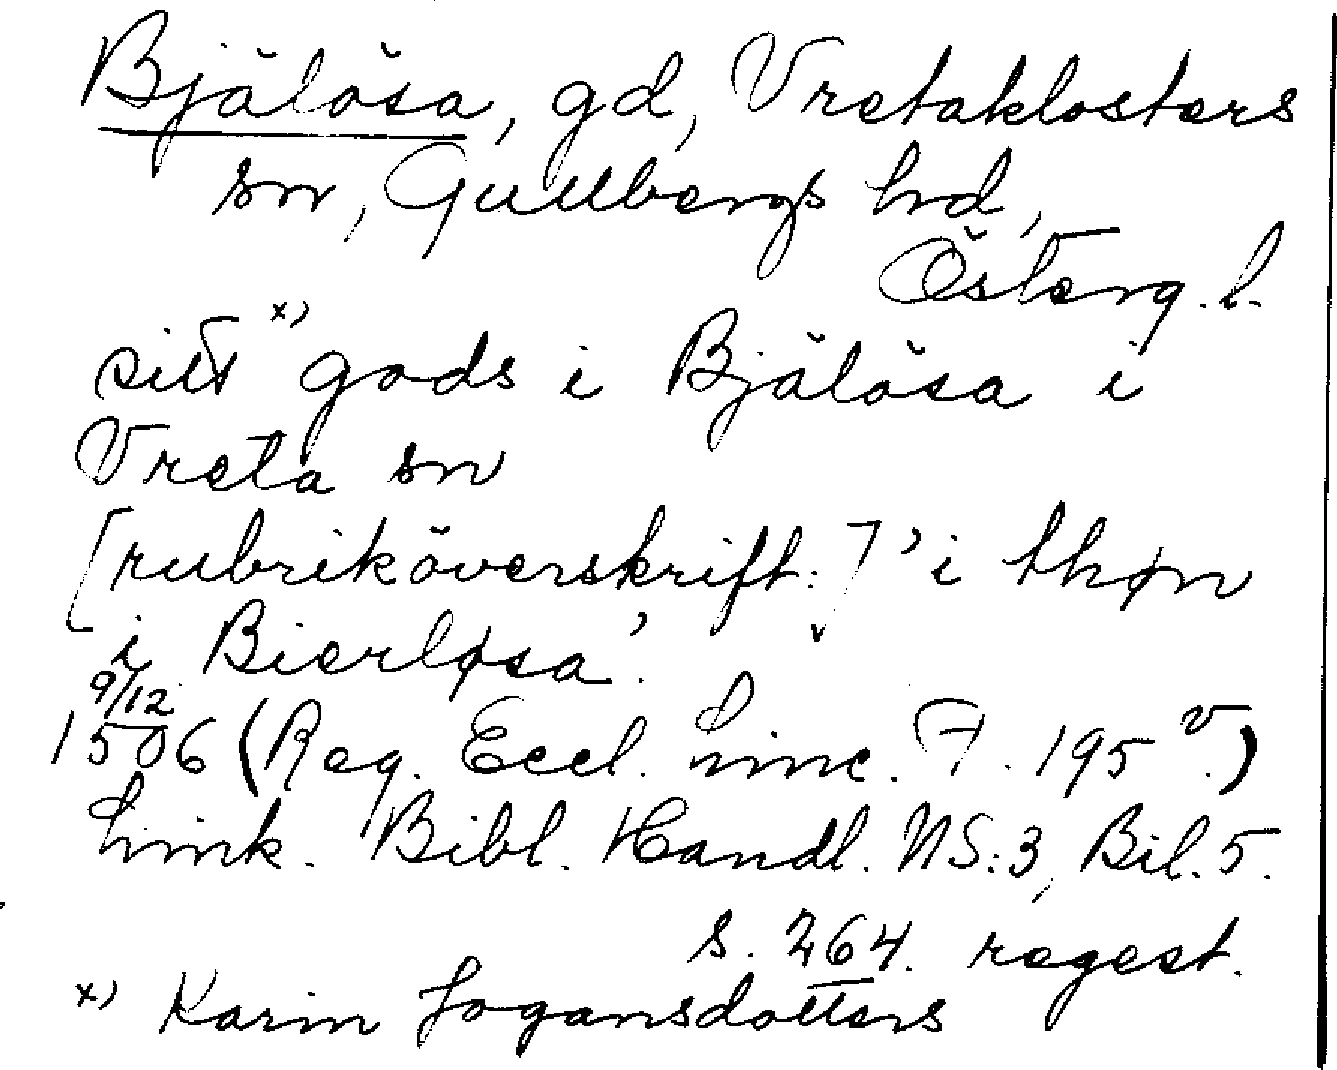 Bjälösa, gd, Vretaklosters
sn, Gullbergs hd,
Österg.l.
sitt x) gods i Bjälösa i
Vreta sn
[rubriköverskrift:] 'i thøn
i Bierløsa'.
9/12
1506 (Reg. Eccl. Linc. F. 195 v.)
Link. Bibl. Handl. NS:3, Bil. 5.
s. 264. regest.
x) Karin Jogansdotters